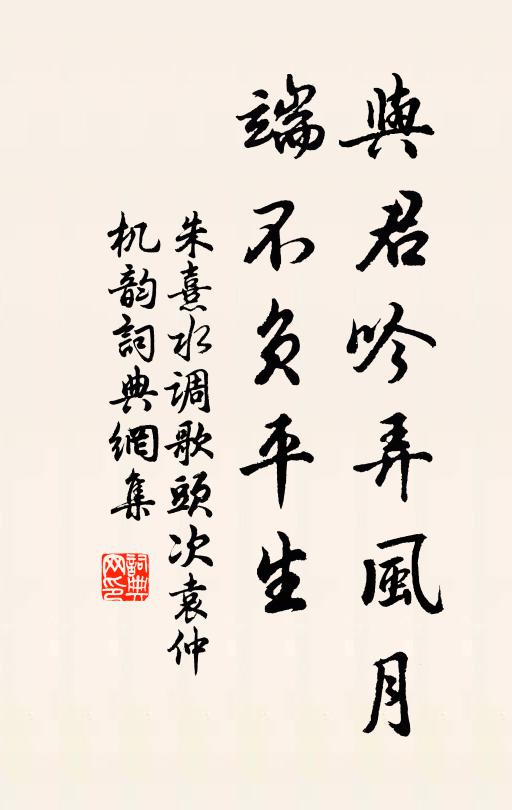 與君吟弄風月
端不負平生
朱熹水调歌頭次袁仲
机韵詞典網集
詞典
网印